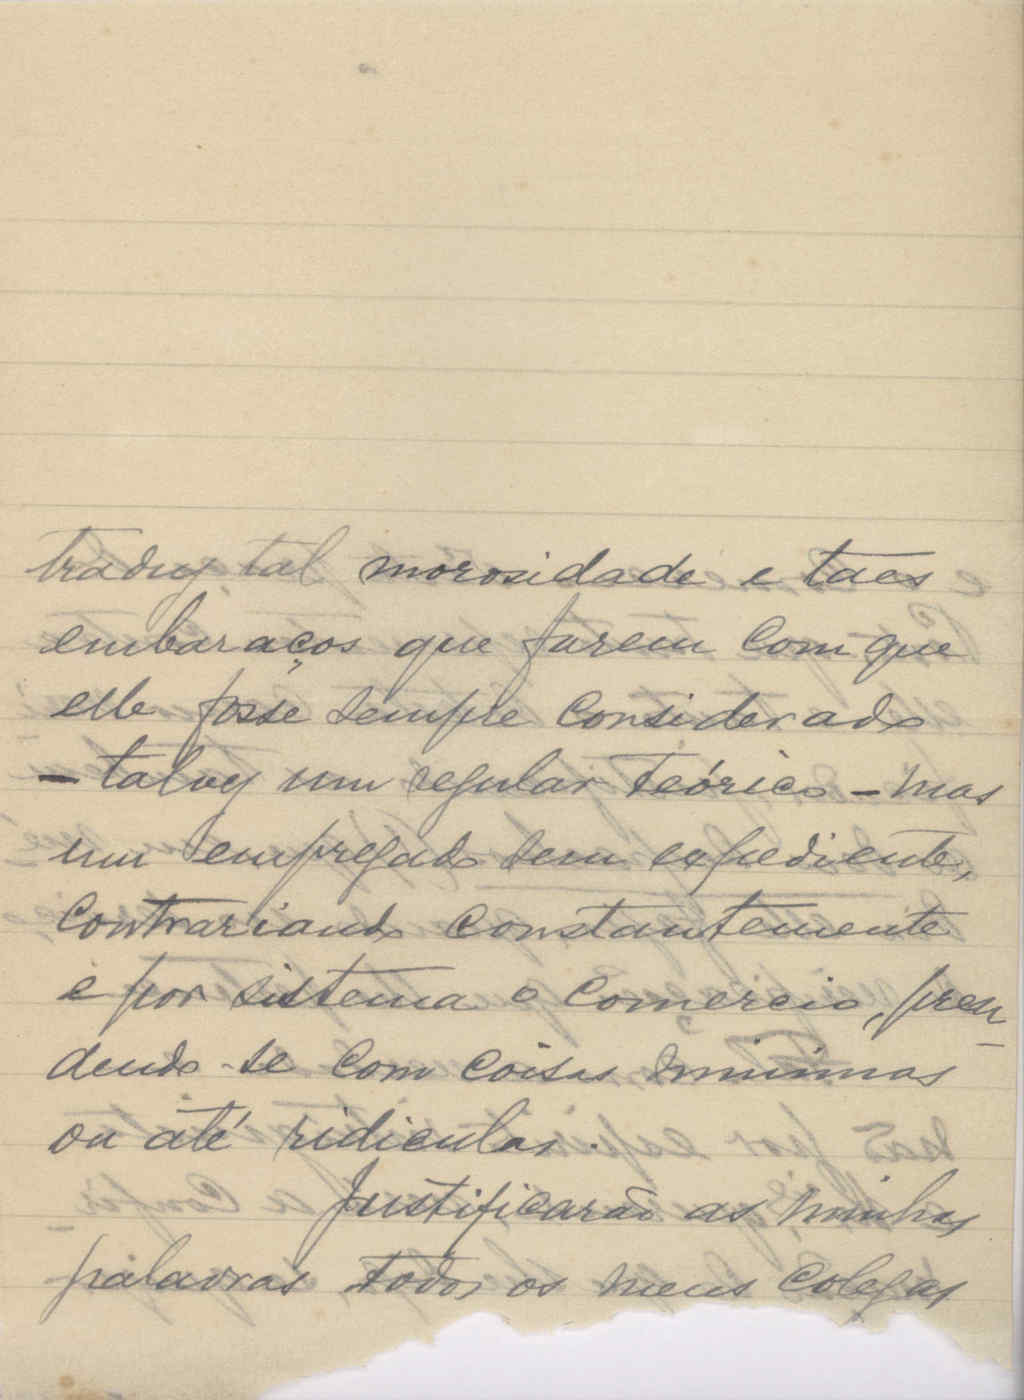 traduz tal morosidade e taes
embaraços que fazem com que
elle fosse sempre considerado
– talvez um regular teórico – mas
um empregado sem expediente,
contrariando constantemente
e por sistema o comercio, pren-
dendo-se com coisas minimas
ou até ridiculas.
Justificarão as minhas
palavras todos os meus colegas